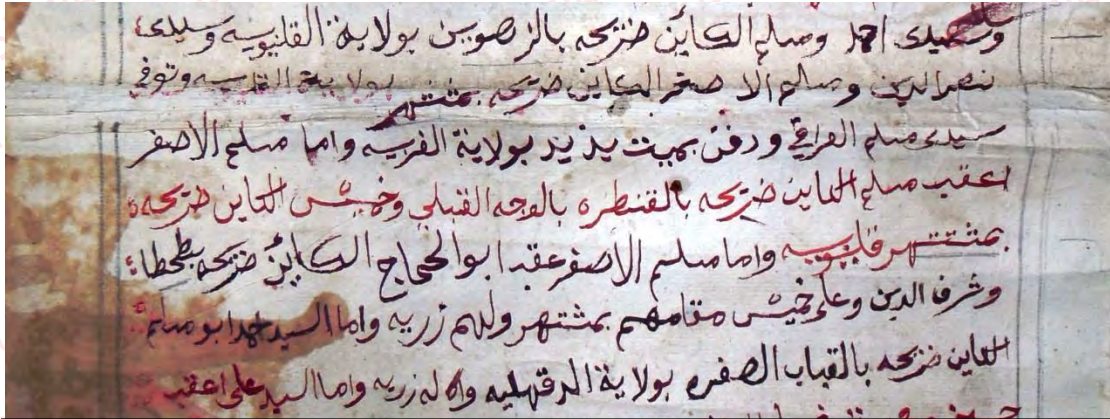 وسيدى احمد ومسلم الكاين ضريحه بالزهويين بولاية القليوبيه وسيدى
نصر الدين ومسلم الاصغر الكاين ضريحه بمشتهر بولاية القليوبيه وتوفي
سيدى مسلم العراقي ودفن بميت يزيد بولاية الغربيه واما مسلم الاصغر
اعقب مسلم الكاين ضريحه بالقنطره بالوجه القبلي وخميس الكاين ضريحه
بمشتهر قليوبيه واما مسلم الاصغر عقب ابو الحجاج الكائن ضريحه بطحطا
وشرف الدين وعلى خميس مقامهم بمشتهر ولهم زريه واما السيد احمد ابو مسلم
الكاين ضريحه بالقباب الصغره بولاية الدقهليه وله زريه واما السيد على اعقب